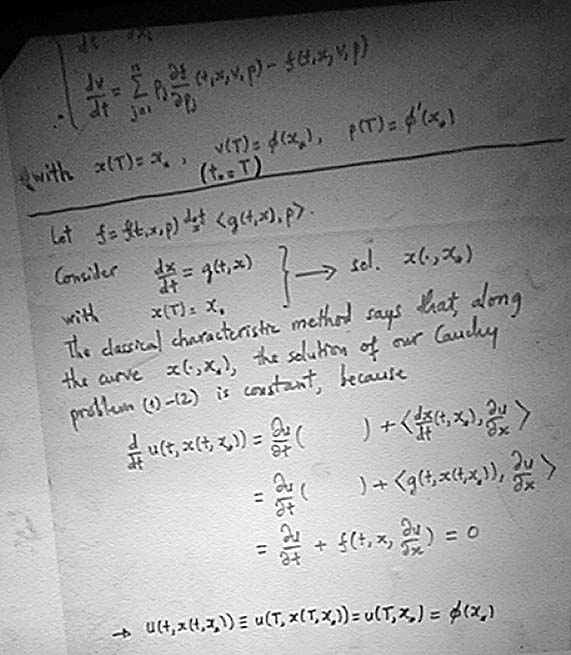 dt ∂x_i
dv/dt = Σ_{j=1}^{n} p_j ∂f/∂p_j (t,x,v,p) - f(t,x,v,p)
with x(T) = x_0, v(T) = φ(x_0), p(T) = φ'(x_0)
(t_0 = T)
Let f = f(t,x,p) def= <g(t,x),p>.
Consider dx/dt = g(t,x)
with x(T) = x_0 } → sol. x(·,x_0)
The classical characteristic method says that, along
the curve x(·,x_0), the solution of our Cauchy
problem (1)-(2) is constant, because
d/dt u(t,x(t,x_0)) = ∂u/∂t ( ) + <dx/dt(t,x_0), ∂u/∂x>
= ∂u/∂t ( ) + <g(t,x(t,x_0)), ∂u/∂x>
= ∂u/∂t + f(t,x,∂u/∂x) = 0
→ u(t,x(t,x_0)) ≡ u(T,x(T,x_0)) = u(T,x_0) = φ(x_0)